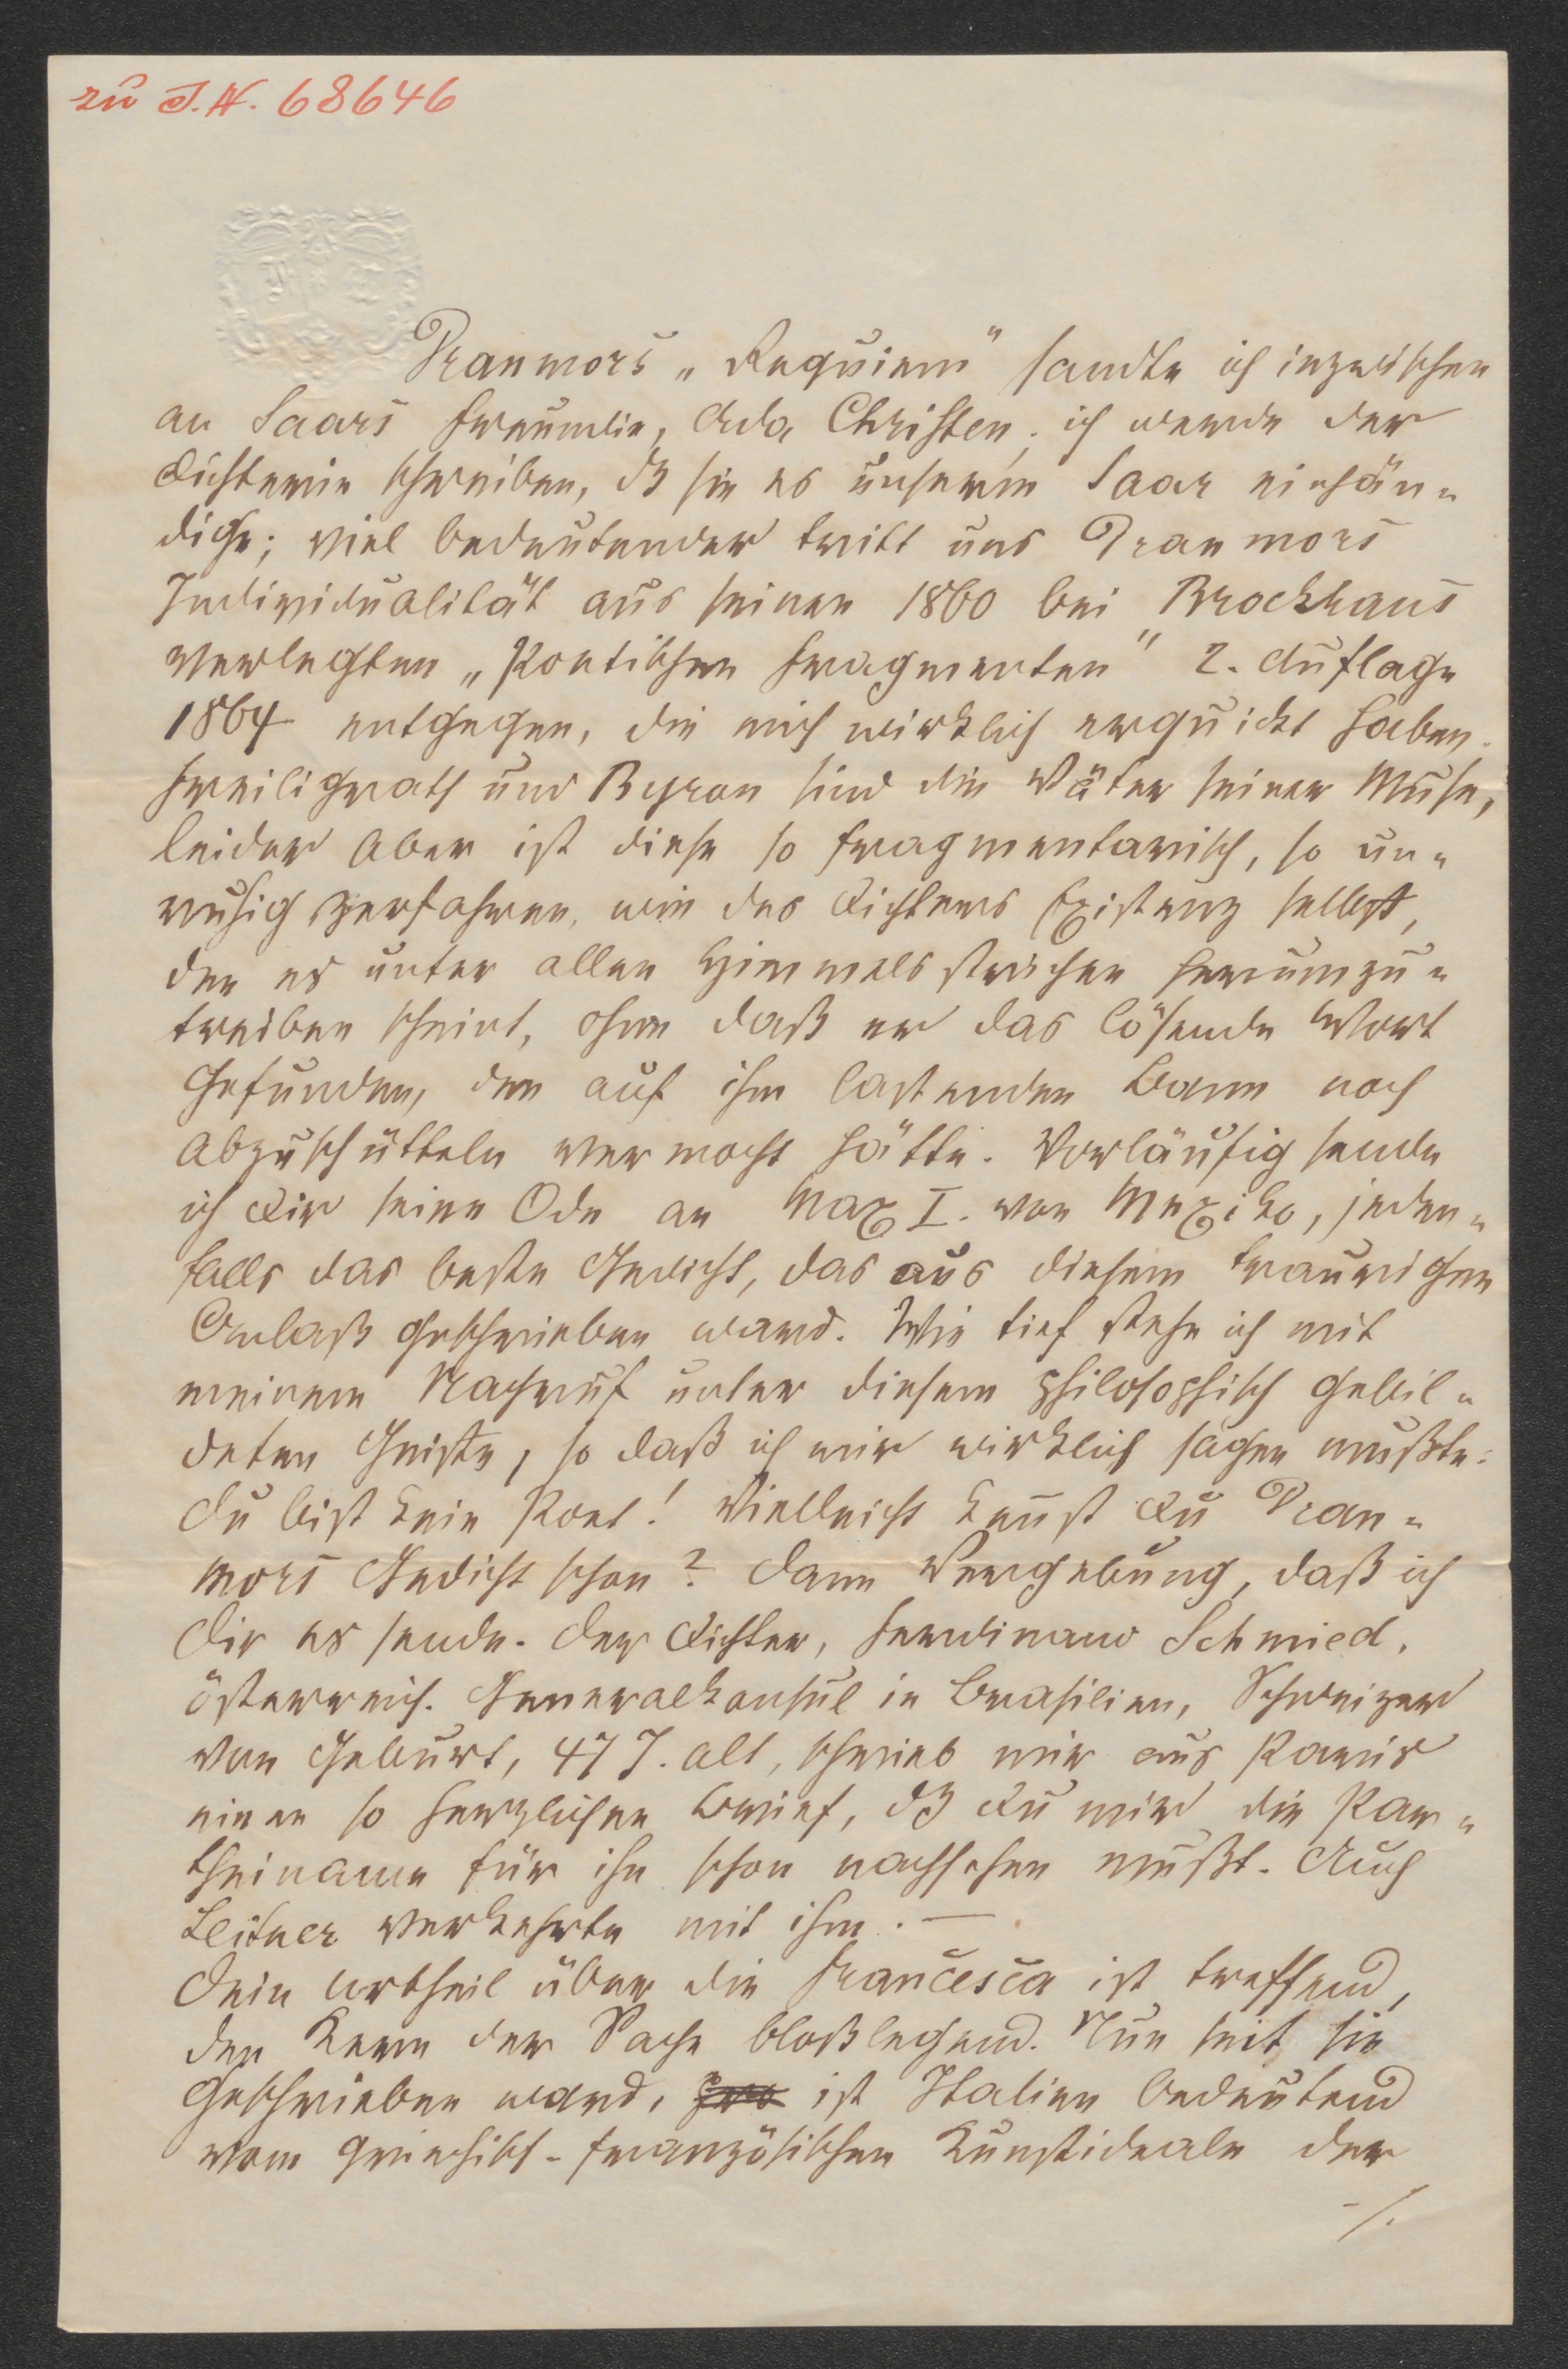 zu I.N. 68646
Dranmors „Requiem“ sandte ich inzwischen
an Saars Freundin, Ada Christen, ich werde der
Dichterin schreiben, dß sie es unserm Saar einhän=
dige; viel bedeutender tritt uns Dranmors
Individualität aus seinen 1860 bei Brockhaus
verlegten „Poetischen Fragmenten“ 2. Auflage
1864 entgegen, die mich wirklich erquickt haben.
Freiligrath und Byron sind die Väter seiner Muse,
leider aber ist diese so fragmentarisch, so un=
ruhig zerfahren, wie des Dichters Existenz selbst,
den es unter allen Himmelsstrichen herumzu=
treiben scheint, ohne daß er das lösende Wort
gefunden, den auf ihm lastenden Bann noch
abzuschütteln vermocht hätte. Vorläufig sende
ich Dir seine Ode an Max I. von Mexiko, jeden=
falls das beste Gedicht, das aus diesem traurigen
Anlaß geschrieben ward. Wie tief stehe ich mit
meinem Nachruf unter diesem philosophisch gebil=
deten Geiste, so daß ich mir wirklich sagen mußte:
Du bist kein Poet! Vielleicht kennst Du Dran=
mors Gedicht schon? Dann Vergebung, daß ich
Dir es sende. Der Dichter, Ferdinand Schmied,
österreich. Generalkonsul in Brasilien, Schweizer
von Geburt, 47 J. alt, schrieb mir aus Paris
einen so herzlichen Brief, dß Du mir die Par=
theiname für ihn schon nachsehen mußt. Auch
Leitner verkehrte mit ihm. —
Dein Urtheil über die Francesca ist treffend,
den Kern der Sache bloßlegend. Nun seit sie
geschrieben ward, ist Italien bedeutend
vom griechisch-französischen Kunstideale der
-/.